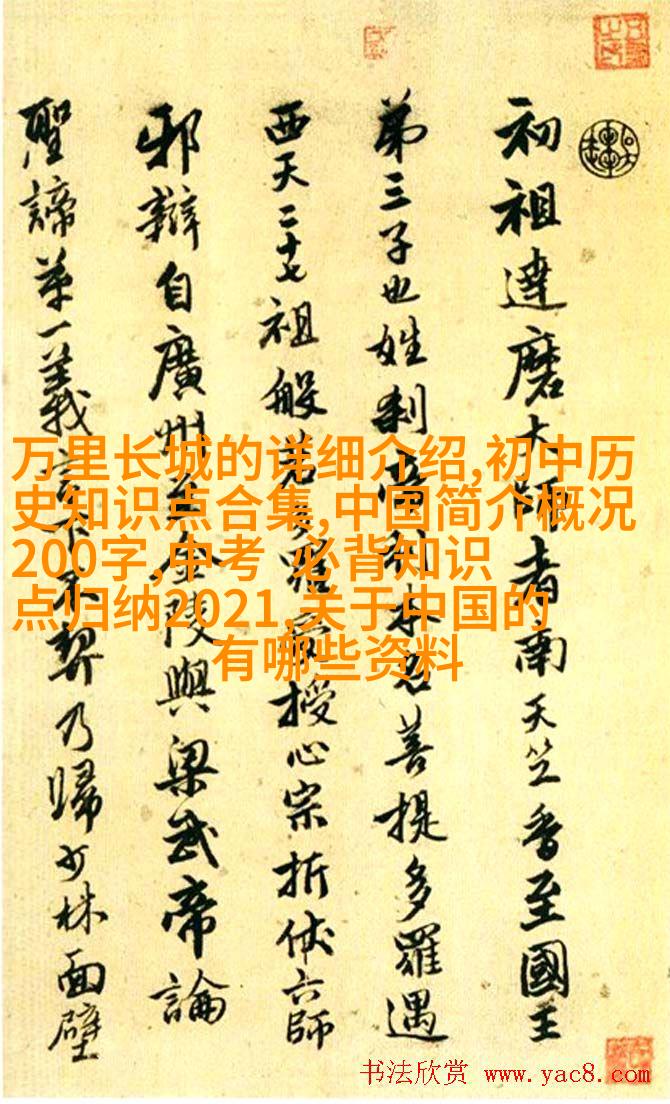 初祖達磨大師者南天竺香至國王
第三子也姓刹帝利本名菩提多羅遇
西天二十七祖般若多羅授心宗折伏六師
邪辯自廣州至金陵與梁武帝論
聖諦第一義言下不契乃歸少林面壁
万里长城的详细介绍,初中历
史知识点合集,中国简介概况
200字,中考 必背知识
点归纳2021,关于中国的
有哪些资料
书法欣赏 www.yac8.com